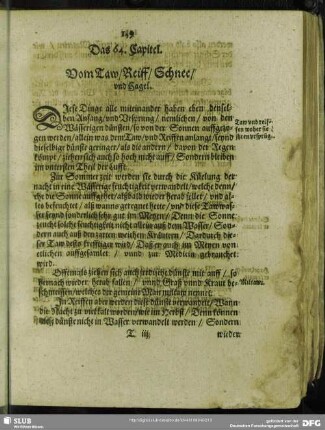 149
Das 64. Capitel.
Vom Taw/Reiff/Schnee/
vnd Hagel.
Diese Dinge alle miteinander haben eben denselben
Anfang/vnd Vrsprung/nemlichen/von den
Wässerigen dünsten/so von der Sonnen auffgezogen
werden/allein was dem Taw/vnd Reiffen anlangt/seynd
dieselbige dünste geringer/als die andern/davon der Regen
kömpt/ziehen sich auch so hoch nicht auff/Sondern bleiben
im vntersten Theil der Lufft.
Taw vnd reiffen
woher sie
Zur Sommerzeit werden sie durch die Kühlung der
nacht in eine Wässerige feuchtigkeit verwandelt/welche denn/
ehe die Sonne auffgehet/alsbald wieder herab fellet/vnd alles
befeuchtet/als wanns geregnet hette/vnd diese
seynd sonderlich sehr gut im Meyen/Denn die Sonne
zeucht solche feuchtigkeit nicht allein auß dem Wasser/Sondern
auch auß den zarten weichen Kräutern/Dardurch dieser
Taw desto krefftiger wird/Daß er auch im Meyen von
etlichen auffgesamlet/vnnd zur Medicin gebrauchet
wird.
Offtmals ziehen sich auch irrdische dünste mit auff/so
hernach wieder herab fallen/vnnd Graß vnnd Kraut beschmeissen/welches
der gemeine Man nennet.
In Reiffen aber werden diese dünste verwandelt/Wann
die Nacht zu viel kalt worden/wie im Herbst/Denn können
diese dünste nicht in Wasser verwandelt werden/Sondern
T iij
wieder
SLUB
Wir führen Wissen.
http://digital.slub-dresden.de/
gefördert von der
Deutschen Forschungsgemeinschaft
DFG